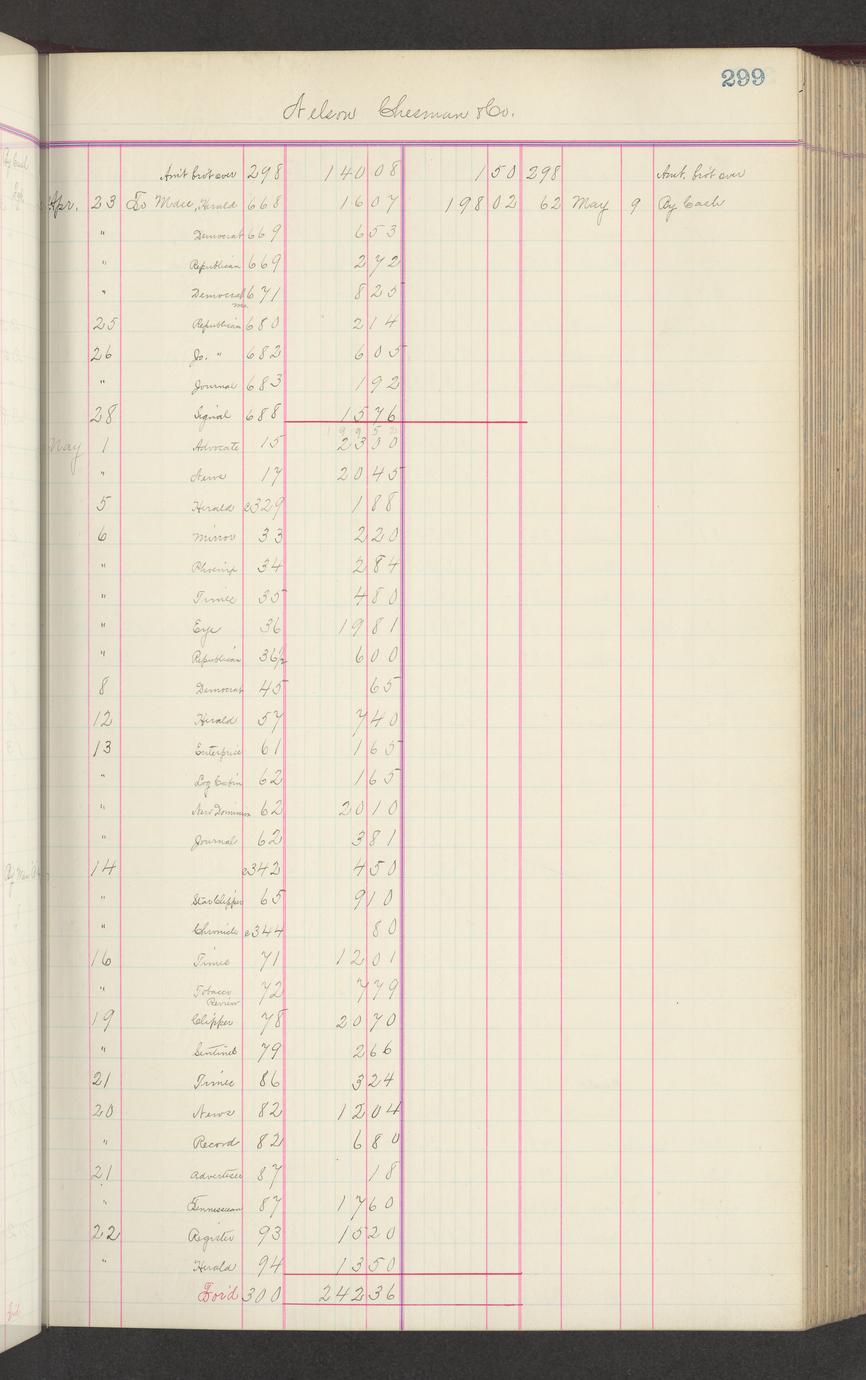 299
Nelson Chesman & Co.
Am't bro't over 298 140 08 1 50 298 Amt. bro't over
Apr. 23 To Mdse, Herald 668 16 07 198 02 62 May 9 By Cash
" Democrat 669 6 53
" Republican 669 2 72
" Democrat 671 8 25
25 Republican 680 2 14
26 Jo. " 682 6 05
" Journal 683 1 92
28 Signal 688 15 76
199 52
May 1 Advocate 15 23 00
" News 17 20 45
5 Herald c329 1 88
6 Mirror 33 2 20
" Phoenix 34 2 84
" Times 35 4 80
" Eye 36 19 81
" Republican 36½ 6 00
8 Democrat 45 65
12 Herald 57 7 40
13 Enterprise 61 1 65
" Log Cabin 62 1 65
" New Dominion 62 20 10
" Journal 62 3 81
14 c342 4 50
" Star Clipper 65 9 10
" Chronicle c344 80
16 Times 71 12 01
" Tobacco Review 72 7 79
19 Clipper 78 20 70
" Sentinel 79 2 66
21 Times 86 3 24
20 News 82 12 04
" Record 82 6 80
21 Advertiser 87 18
" Tennessean 87 17 60
22 Register 93 15 20
" Herald 94 13 50
For'd 300 242 36